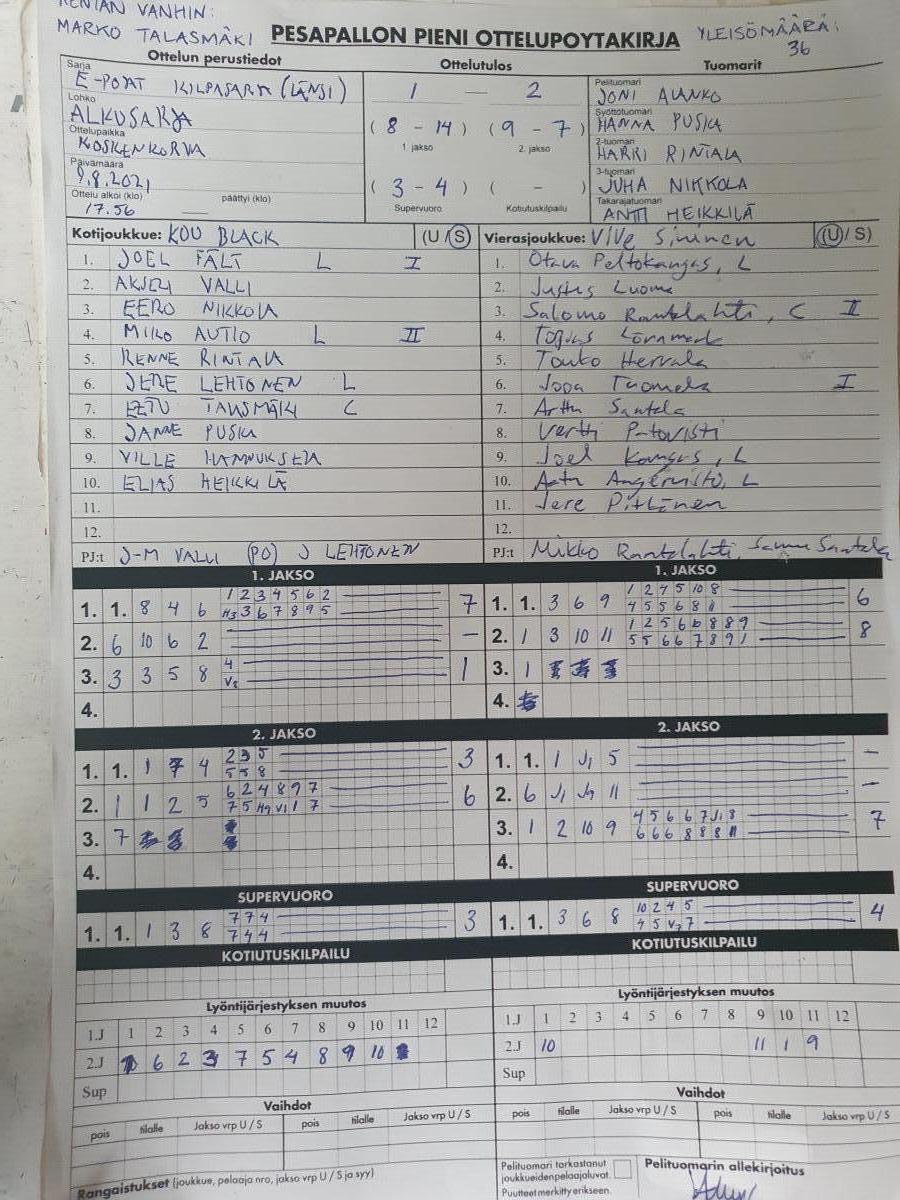 KENTÄN VANHIN:
MARKO TALASMÄKI
PESÄPALLON PIENI OTTELUPÖYTÄKIRJA
YLEISÖMÄÄRÄ:
36
Ottelun perustiedot
Ottelutulos
Tuomarit
Sarja
E-POJAT KILPASARJA (LÄNSI)
Lohko
ALKUSARJA
Ottelupaikka
KOSKENKORVA
Päivämäärä
9.8.2021
Ottelu alkoi (klo) päättyi (klo)
17.56
1 — 2
(8 - 14) (9 - 7)
1. jakso 2. jakso
(3 - 4) ( - )
Supervuoro Kotiutuskilpailu
Pelituomari
JONI ALANKO
Syöttötuomari
HANNA PUSKA
2-tuomari
HARRI RINTALA
3-tuomari
JUHA NIKKOLA
Takarajatuomari
ANTTI HEIKKILÄ
Kotijoukkue: KOU BLACK (U/S)
1. JOEL FÄLT L I
2. AKSELI VALLI
3. EERO NIKKOLA
4. MIRO AUTIO L II
5. RENNE RINTALA
6. JERE LEHTONEN L
7. EETU TALASMÄKI C
8. JANNE PUSKA
9. VILLE HANNUKSELA
10. ELIAS HEIKKILÄ
11.
12.
PJ:t J-M VALLI (PO) J LEHTONEN
Vierasjoukkue: ViVe Sininen (U/S)
1. Otava Peltokangas, L
2. Justus Luoma
3. Salomo Rantalahti, C II
4.
5. Touko Hervala
6. Joona Tuomela I
7. Arttu Santala
8. Vertti
9. Joel Kangas, L
10. L
11. Jere Pitkänen
12.
PJ:t Mikko Rantalahti, Sammu Santala
1. JAKSO
1. 1. 8 4 6 1 2 3 4 5 6 2 7
H3 3 6 7 8 9 5
2. 6 10 6 2 —
3. 3 3 5 8 4 1
V2
4.
1. JAKSO
1. 1. 3 6 9 1 2 4 5 10 8 6
4 5 5 6 8 11
2. 1 3 10 11 1 2 5 6 6 8 8 9 8
5 5 6 6 7 8 9 1
3. 1
4.
2. JAKSO
1. 1. 1 7 4 2 3 5 3
5 5 8
2. 1 1 2 5 6 2 4 8 9 7 6
7 5 H9 V1 1 7
3. 7
4.
2. JAKSO
1. 1. 1 J1 5 —
2. 6 J1 J9 11 —
3. 1 2 10 9 4 5 6 6 7 J1 8 7
6 6 6 8 8 8 11
4.
SUPERVUORO
1. 1. 1 3 8 7 7 4 3
7 4 4
SUPERVUORO
1. 1. 3 6 8 10 2 4 5 4
4 5 V2 7
KOTIUTUSKILPAILU
KOTIUTUSKILPAILU
Lyöntijärjestyksen muutos
1.J 1 2 3 4 5 6 7 8 9 10 11 12
2.J 1 6 2 3 7 5 4 8 9 10
Sup
Lyöntijärjestyksen muutos
1.J 1 2 3 4 5 6 7 8 9 10 11 12
2.J 10 11 1 9
Sup
Vaihdot
pois tilalle Jakso vrp U / S pois tilalle Jakso vrp U / S
Vaihdot
pois tilalle Jakso vrp U / S pois tilalle Jakso vrp U / S
Rangaistukset (joukkue, pelaaja nro, jakso vrp U / S ja syy)
Pelituomari tarkastanut
joukkueiden pelaajaluvat.
Puutteet merkitty erikseen.
Pelituomarin allekirjoitus